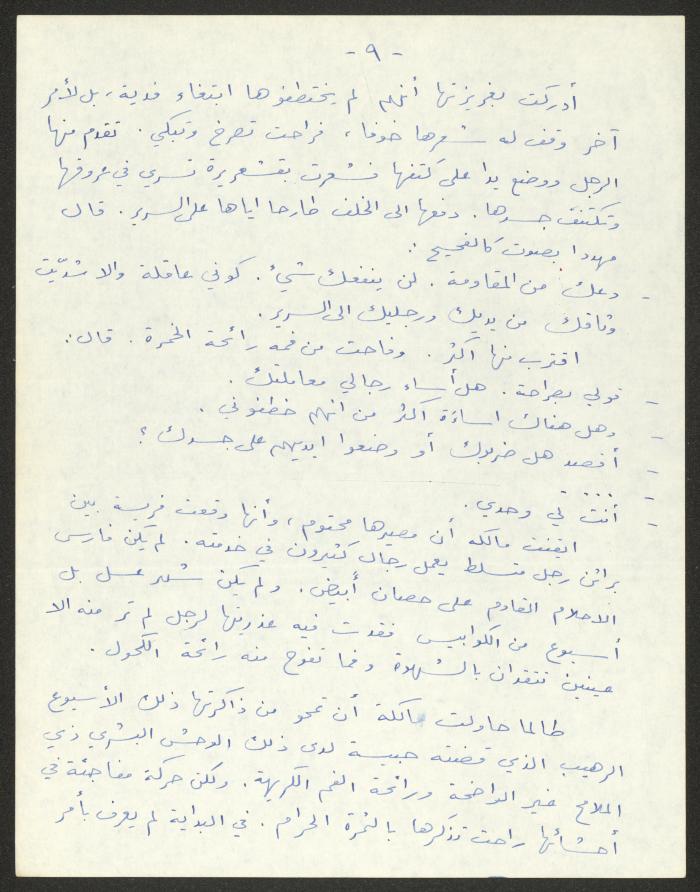 - ٩ -
أدركت بغريزتها أنهم لم يختطفوها ابتغاء فدية، بل لأمر
آخر وقف له شعرها خوفا، فراحت تصرخ وتبكي. تقدم منها
الرجل ووضع يدا على كتفها فشعرت بقشعريرة تسري في عروقها
وتكتنف جسدها. دفعها الى الخلف طارحا اياها على السرير. قال
مهددا بصوت كالفحيح :
- دعك من المقاومة. لن ينفعك شيء. كوني عاقلة والا شدّيت
وثاقك من يديك ورجليك الى السرير.
اقترب منها اكثر. وفاحت من فمه رائحة الخمرة. قال:
- قولي بصراحة. هل أساء رجالي معاملتك.
- وهل هناك اساءة اكثر من انهم خطفوني.
- أقصد هل ضربوك أو وضعوا ايديهم على جسدك ؟
- ....
- أنت لي وحدي.
ايقنت مالكه أن مصيرها محتوم، وأنها وقعت فريسة بين
براثن رجل متسلط يعمل رجال كثيرون في خدمته. لم يكن فارس
الاحلام القادم على حصان أبيض. ولم يكن شهر عسل بل
أسبوع من الكوابيس فقدت فيه عذريتها لرجل لم تر منه الا
عينين تتقدان بالشهوة وفما تفوح منه رائحة الكحول.
طالما حاولت مالكة أن تمحو من ذاكرتها ذلك الأسبوع
الرهيب الذي قضته حبيسة لدى ذلك الوحش البشري ذي
الملامح غير الواضحة ورائحة الفم الكريهة. ولكن حركة مفاجئة في
أحشائها راحت تذكرها بالثمرة الحرام. في البداية لم يعرف بأمر